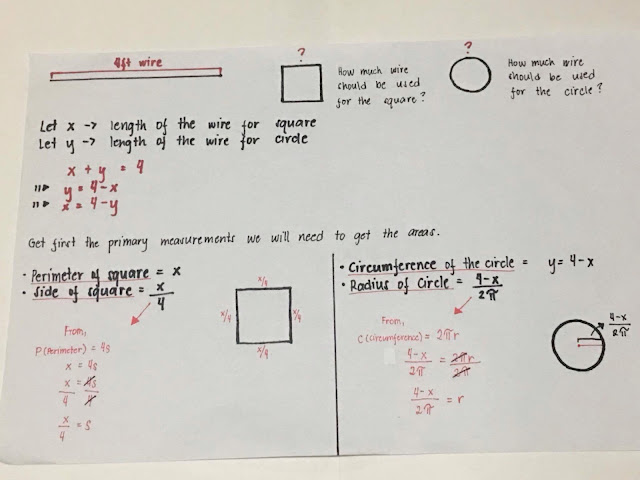 4ft wire
?
How much wire
should be used
for the square?
?
How much wire
should be used
for the circle?
Let x -> length of the wire for square
Let y -> length of the wire for circle
x + y = 4
y = 4-x
x = 4-y
Get first the primary measurements we will need to get the areas.
• Perimeter of square = x
• Side of square = x/4
From,
P (Perimeter) = 4s
x = 4s
x/4 = 4s/4
x/4 = s
x/4
x/4
x/4
x/4
• Circumference of the circle = y = 4-x
• Radius of Circle = 4-x/2π
From,
C (Circumference) = 2πr
4-x/2π = 2πr/2π
4-x/2π = r
4-x/2π